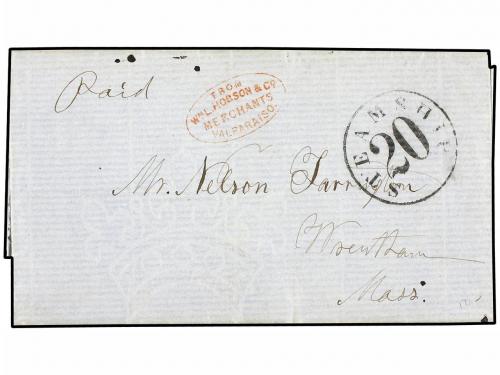 Paid
FROM
WM. HOBSON & Co
MERCHANTS
VALPARAISO.
STEAMSHIP
20
Mr. Nelson Farrington
Wrentham
Mass.